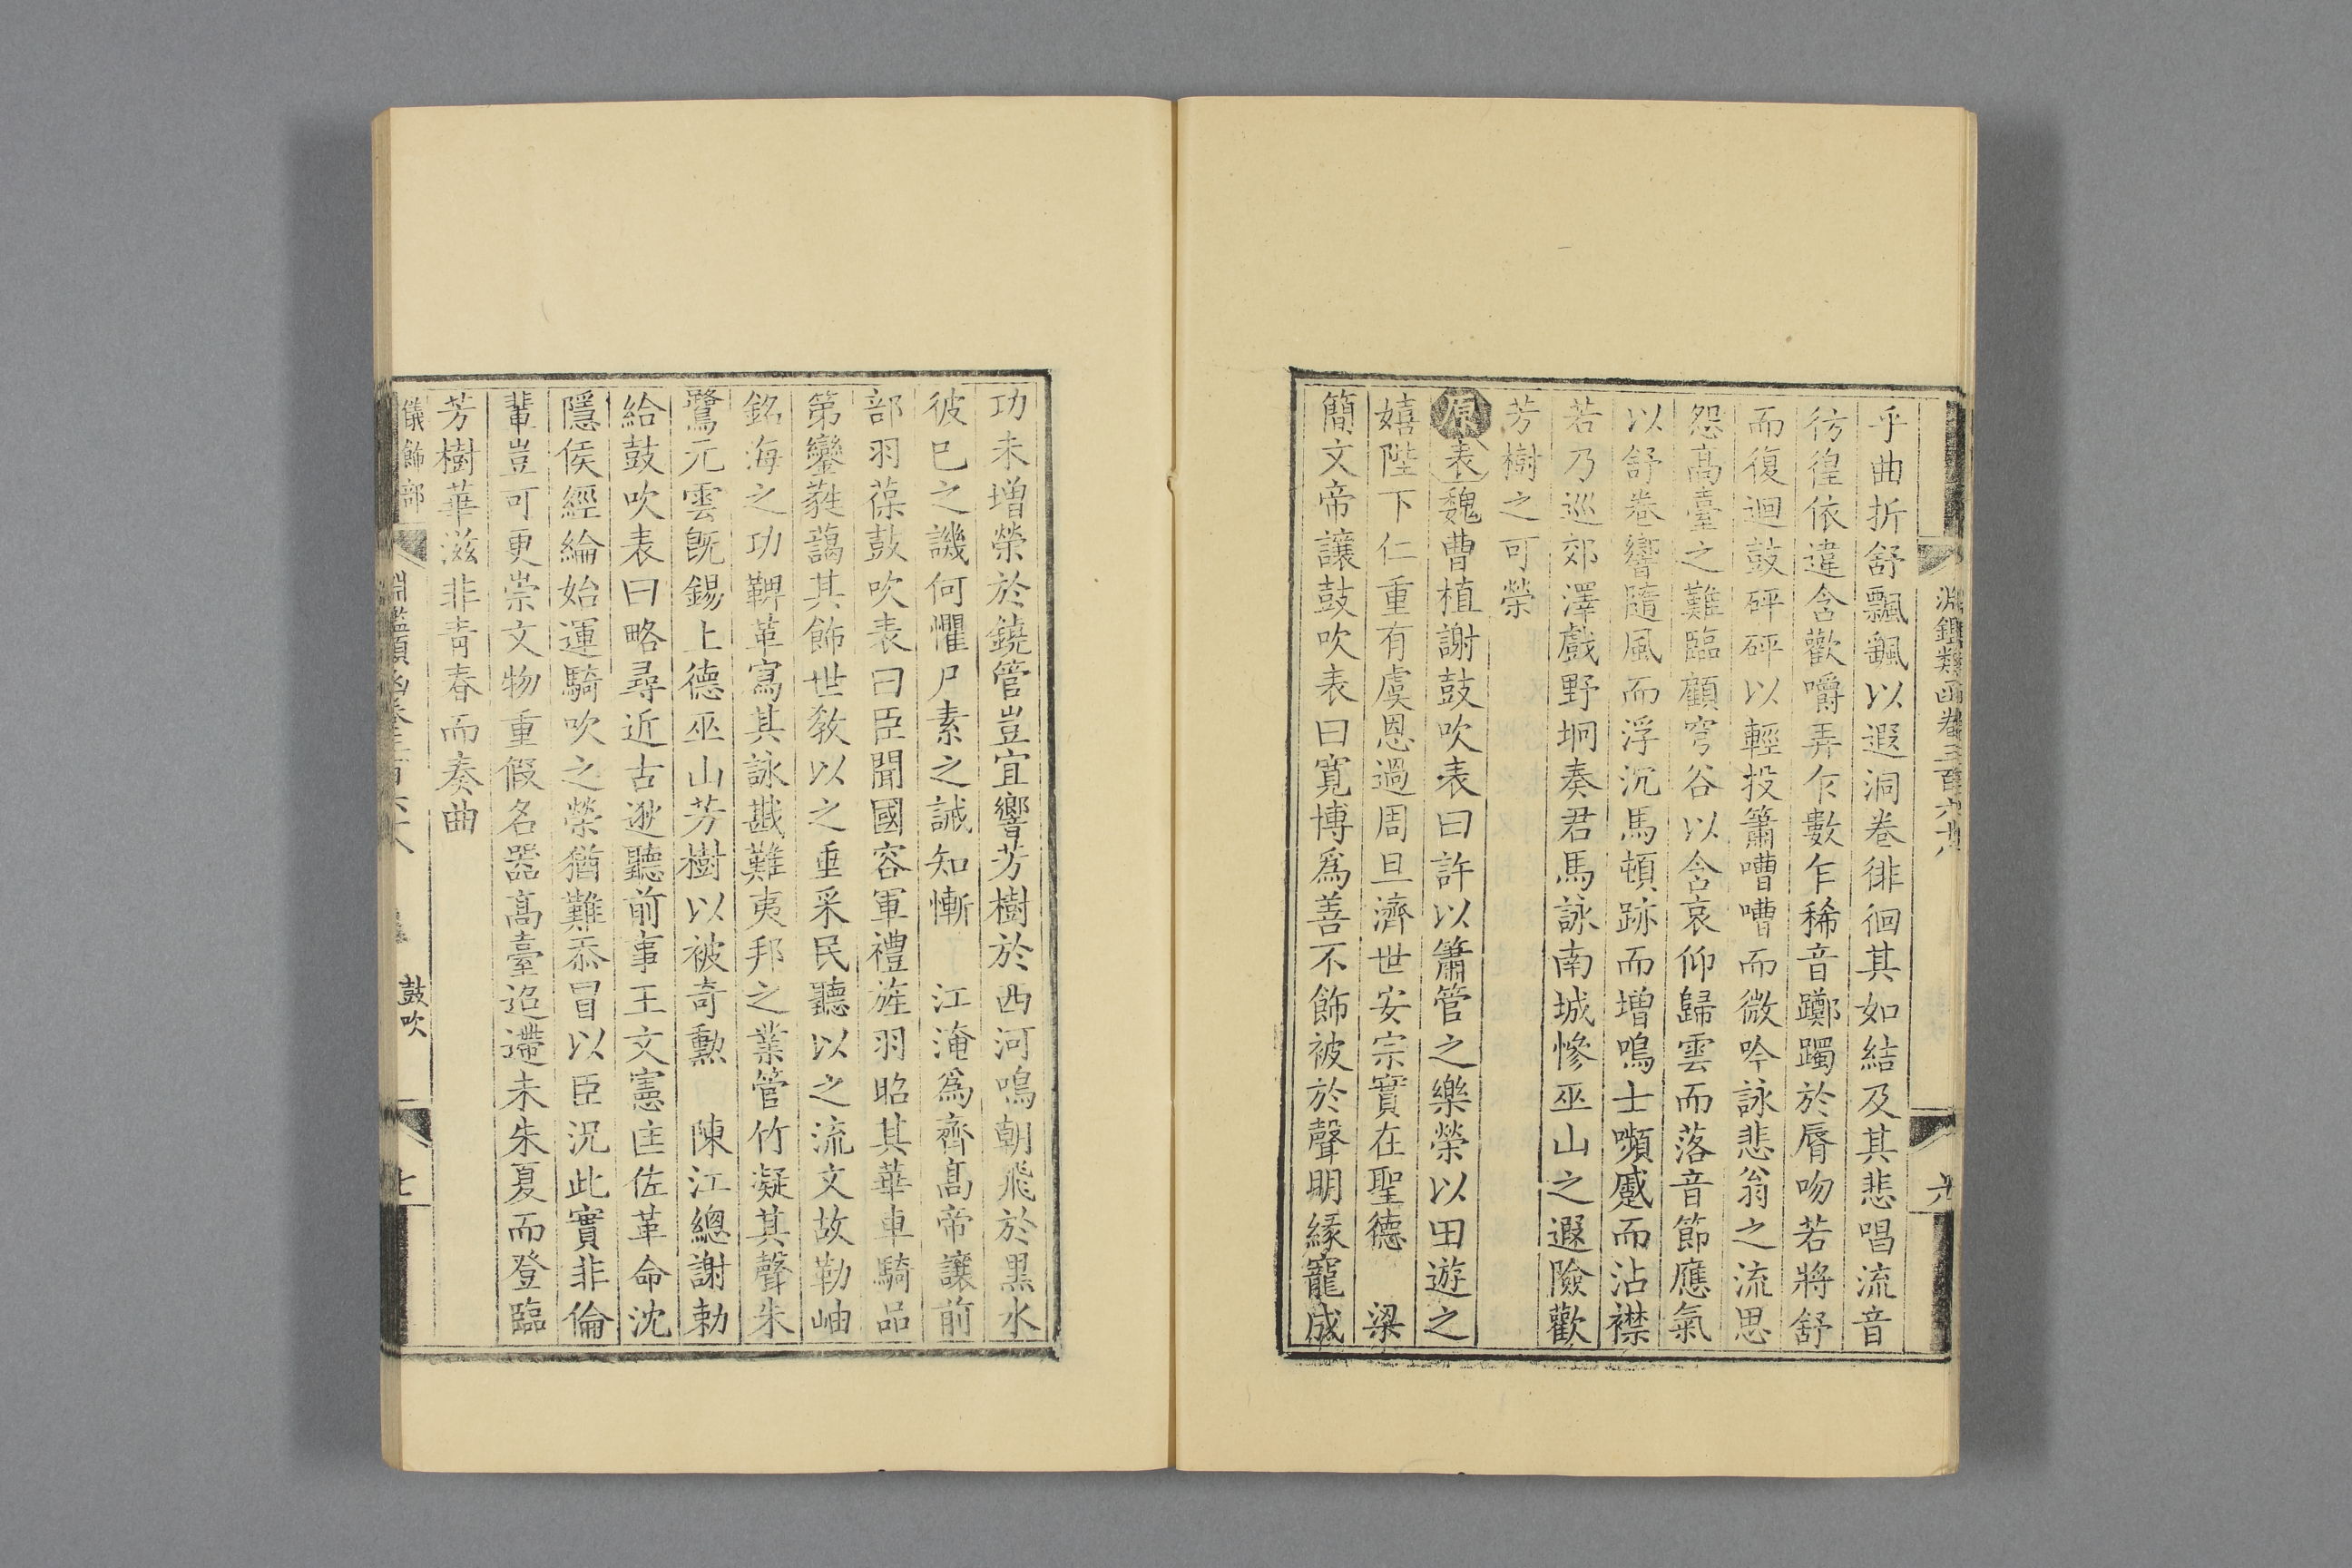 淵鑑類函卷三百六十八
乎曲折舒飄飖以遐洞卷徘徊其如結及其悲唱流音
彷徨依違含歡嚼弄乍數乍稀音躑躅於脣吻若將舒
而復迴鼓砰砰以輕投簫嘈嘈而微吟詠悲翁之流思
怨高臺之難臨顧穹谷以含哀仰歸雲而落音節應氣
以舒卷響隨風而浮沉馬頓跡而增鳴士嚬蹙而沾襟
若乃巡郊澤戲野坰奏君馬詠南城慘巫山之遐險歡
芳樹之可榮
原表魏曹植謝鼓吹表曰許以簫管之樂榮以田遊之
嬉陛下仁重有虞恩過周旦濟世安宗實在聖德 梁
簡文帝讓鼓吹表曰寬博爲善不飾被於聲明緣寵成
功未增榮於鐃管豈宜響芳樹於西河鳴朝飛於黑水
彼已之譏何懼尸素之誡知慚 江淹爲齊高帝讓前
部羽葆鼓吹表曰臣聞國容軍禮旌羽昭其華車騎品
第鑾蕤藹其飾世教以之垂采民聽以之流文故勒岫
銘海之功鞞革寫其詠戡難夷邦之業管竹凝其聲朱
鷺元雲旣錫上德巫山芳樹以被奇勲 陳江總謝勅
給鼓吹表曰略尋近古逖聽前事王文憲匡佐革命沈
隱侯經綸始運騎吹之榮猶難忝冒以臣況此實非倫
輩豈可更崇文物重假名器高臺迢遰未朱夏而登臨
芳樹華滋非青春而奏曲
儀飾部 淵鑑類函卷三百六十八 鼓吹 七